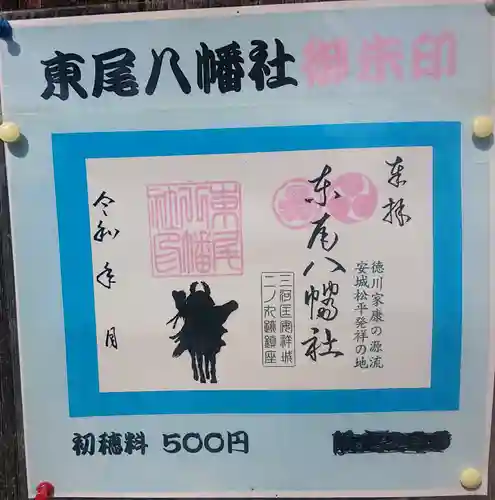 東尾八幡社 御朱印
奉拝
徳川家康の源流
安城松平発祥の地
東尾八幡社
三河国安祥城
二ノ丸鎮座
東尾
八幡
社印
令和 年 月
初穂料 500円